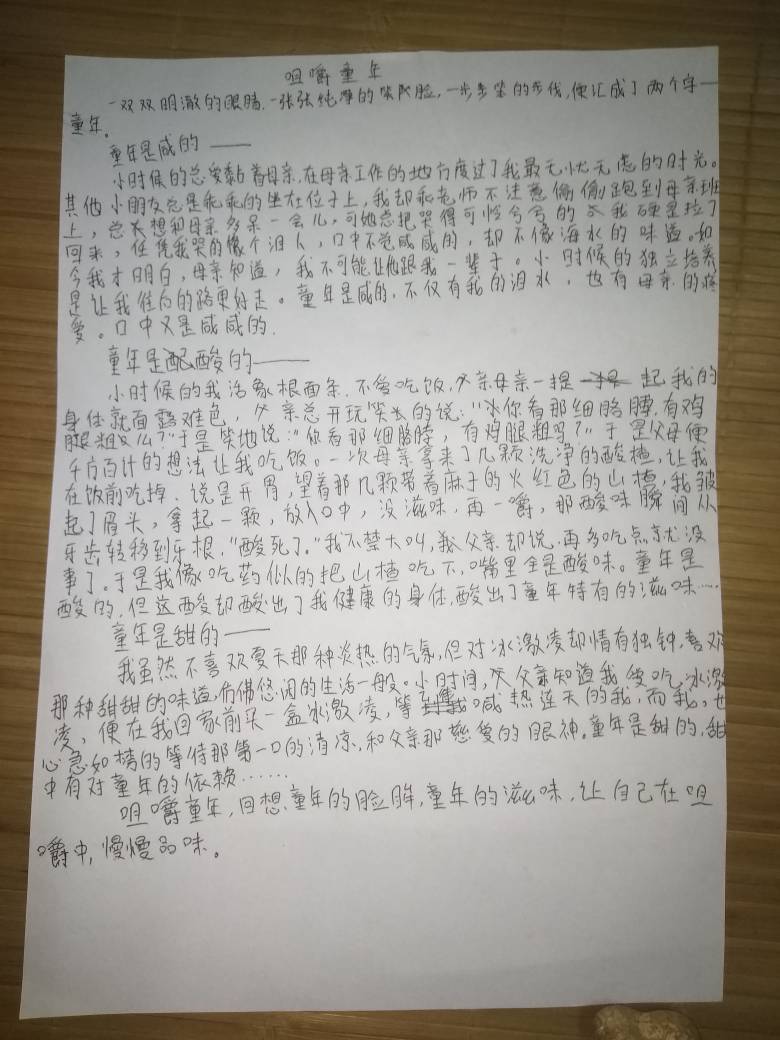 咀嚼童年
一双双明澈的眼睛,一张张纯净的笑脸,一步步坚的步伐,便汇成了两个字——
童年。
童年是咸的——
小时候的总爱黏着母亲,在母亲工作的地方度过了我最无忧无虑的时光。
其他小朋友总是乖乖的坐在位子上,我却乘老师不注意偷偷跑到母亲班
上,总想和母亲多呆一会儿,可她总把哭得可怜兮兮的我硬是拉了
回来,任凭我哭的像个泪人,口中不觉咸咸的,却不像海水的味道。如
今我才明白,母亲知道,我不可能让他跟我一辈子。小时候的独立培养
是让我往后的路更好走。童年是咸的,不仅有我的泪水,也有母亲的疼
爱。口中又是咸咸的.
童年是酸的——
小时候的我活象根面条,不爱吃饭,父亲母亲一提起我的
身体就面露难色,父亲总开玩笑的说:"你看那细胳膊,有鸡
腿粗么?"于是笑地说:"你看那细胳膊,有鸡腿粗吗?"于是父母便
千方百计的想法让我吃饭。一次母亲拿来了几颗洗净的酸楂,让我
在饭前吃掉,说是开胃,望着那几颗带着麻子的火红色的山楂,我皱
起了眉头,拿起一颗,放入口中,没滋味,再一嚼,那酸味瞬间从
牙齿转移到牙根,"酸死了。"我不禁大叫,我父亲却说,再多吃点就没
事了。于是我像吃药似的把山楂吃下,嘴里全是酸味。童年是
酸的,但这酸却酸出了我健康的身体,酸出了童年特有的滋味……
童年是甜的——
我虽然不喜欢夏天那种炎热的气氛,但对冰激凌却情有独钟,喜欢
那种甜甜的味道,仿佛悠闲的生活一般。小时间,父亲知道我爱吃冰激
凌,便在我回家前买一盒冰激凌,等喊热连天的我,而我,也
心急如焚的等待那第一口的清凉,和父亲那慈爱的眼神。童年是甜的,甜
中有对童年的依赖……
咀嚼童年,回想童年的脸眸,童年的滋味,让自己在咀
嚼中,慢慢品味。